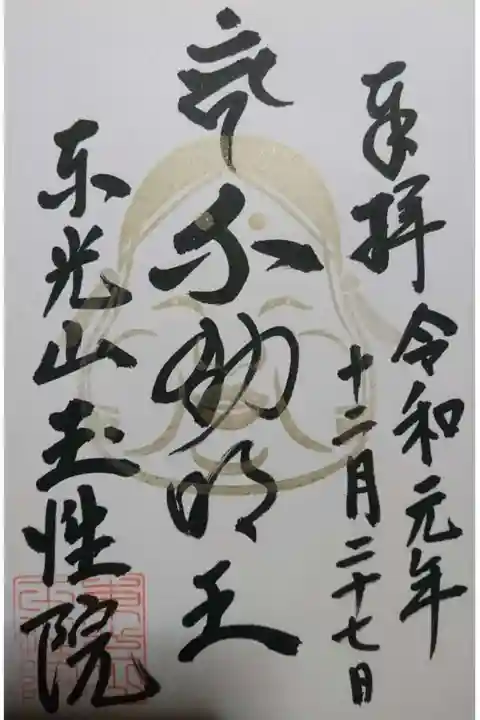 奉拝
令和元年
十二月二十七日
不動明王
東光山玉性院